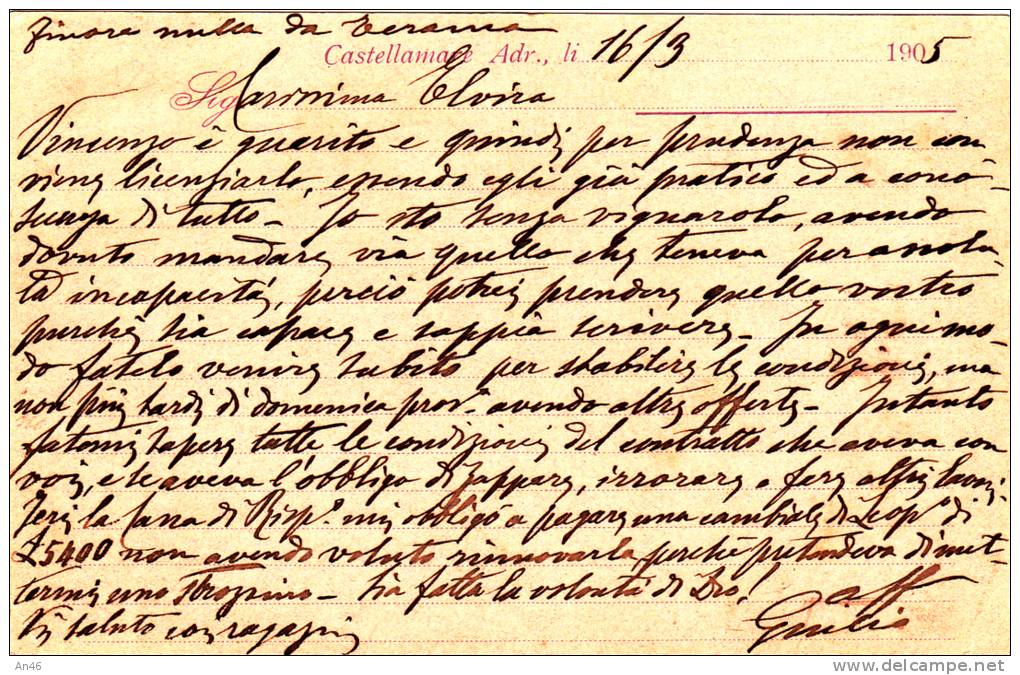 Finora nulla da Teramo
Castellamare Adr., li 16/3 1905
Sig Carissima Elvira
Vincenzo è guarito e quindi per prudenza non con
viene licenziarlo, essendo egli già pratico ed a cono-
scenza di tutto - Io sto senza vignarolo, avendo
dovuto mandare via quello che teneva per assolu-
ta incapacità, perciò potrei prendere quello vostro
purchè sia capace e sappia scrivere - In ogni mo-
do fatelo venire subito per stabilire le condizioni, ma
non più tardi di domenica pros. avendo altre offerte - Intanto
fatemi sapere tutte le condizioni del contratto che aveva con
voi, e se aveva l'obbligo di zappare, irrorare e fare altri lavori
Ieri la Cassa di Risp. mi obbligò a pagare una cambiale di Leop. di
£5400 non avendo voluto rinnovarla, perchè pretendeva di met-
termi uno - Sia fatta la volontà di Dio!
Vi saluto coi ragazzi
aff
Giulio
An46
http://www.delcampe.net